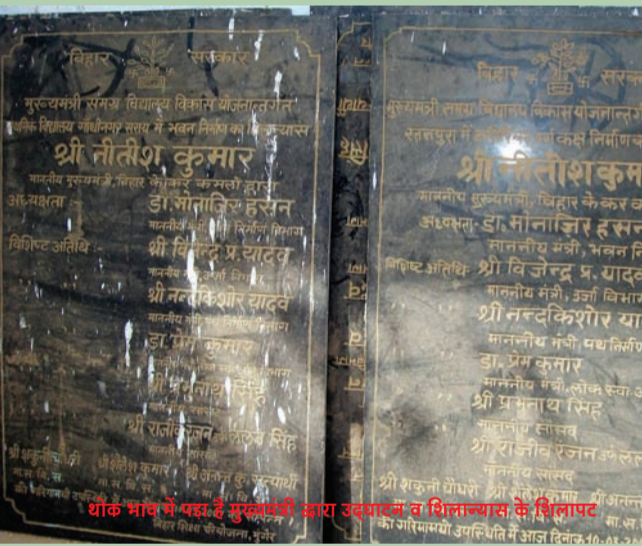 बिहार सरकार
मुख्यमंत्री समग्र विद्यालय विकास योजनान्तर्गत
विद्यालय गाँधीनगर सराय में भवन निर्माण का शिलान्यास
श्री नीतीश कुमार
माननीय मुख्यमंत्री, बिहार के कर कमलों द्वारा
अध्यक्षता :- डा. मोनाजिर हसन
माननीय मंत्री, निर्माण विभाग
विशिष्ट अतिथि :- श्री विजेन्द्र प्र. यादव
माननीय मंत्री, उर्जा विभाग
श्री नन्दकिशोर यादव
माननीय मंत्री, निर्माण विभाग
डा. प्रेम कुमार
श्री प्रभुनाथ सिंह
श्री राजीव रंजन सिंह
श्री शैलेश कुमार
बिहार शिक्षा परियोजना, मुंगेर
बिहार सरका
मुख्यमंत्री समग्र विद्यालय विकास योजनान्तर
रतनपुरा में कक्ष निर्माण
श्री नीतीश कुम
माननीय मुख्यमंत्री, बिहार के कर क
अध्यक्षता:- डा. मोनाजिर हस
माननीय मंत्री, भवन नि
विशिष्ट अतिथि:- श्री विजेन्द्र प्र. याद
माननीय मंत्री, उर्जा विभा
श्री नन्दकिशोर या
माननीय मंत्री, पथ निर्माण
डा. प्रेम कुमार
माननीय मंत्री, लोक स्वा
श्री प्रभुनाथ सिंह
माननीय सांसद
श्री राजीव रंजन
माननीय सांसद
श्री शकुनी चौधरी
की गरिमामयी उपस्थिति में आज दिनांक 10-03-2
थोक भाव में पड़ा है मुख्यमंत्री द्वारा उद्घाटन व शिलान्यास के शिलापट